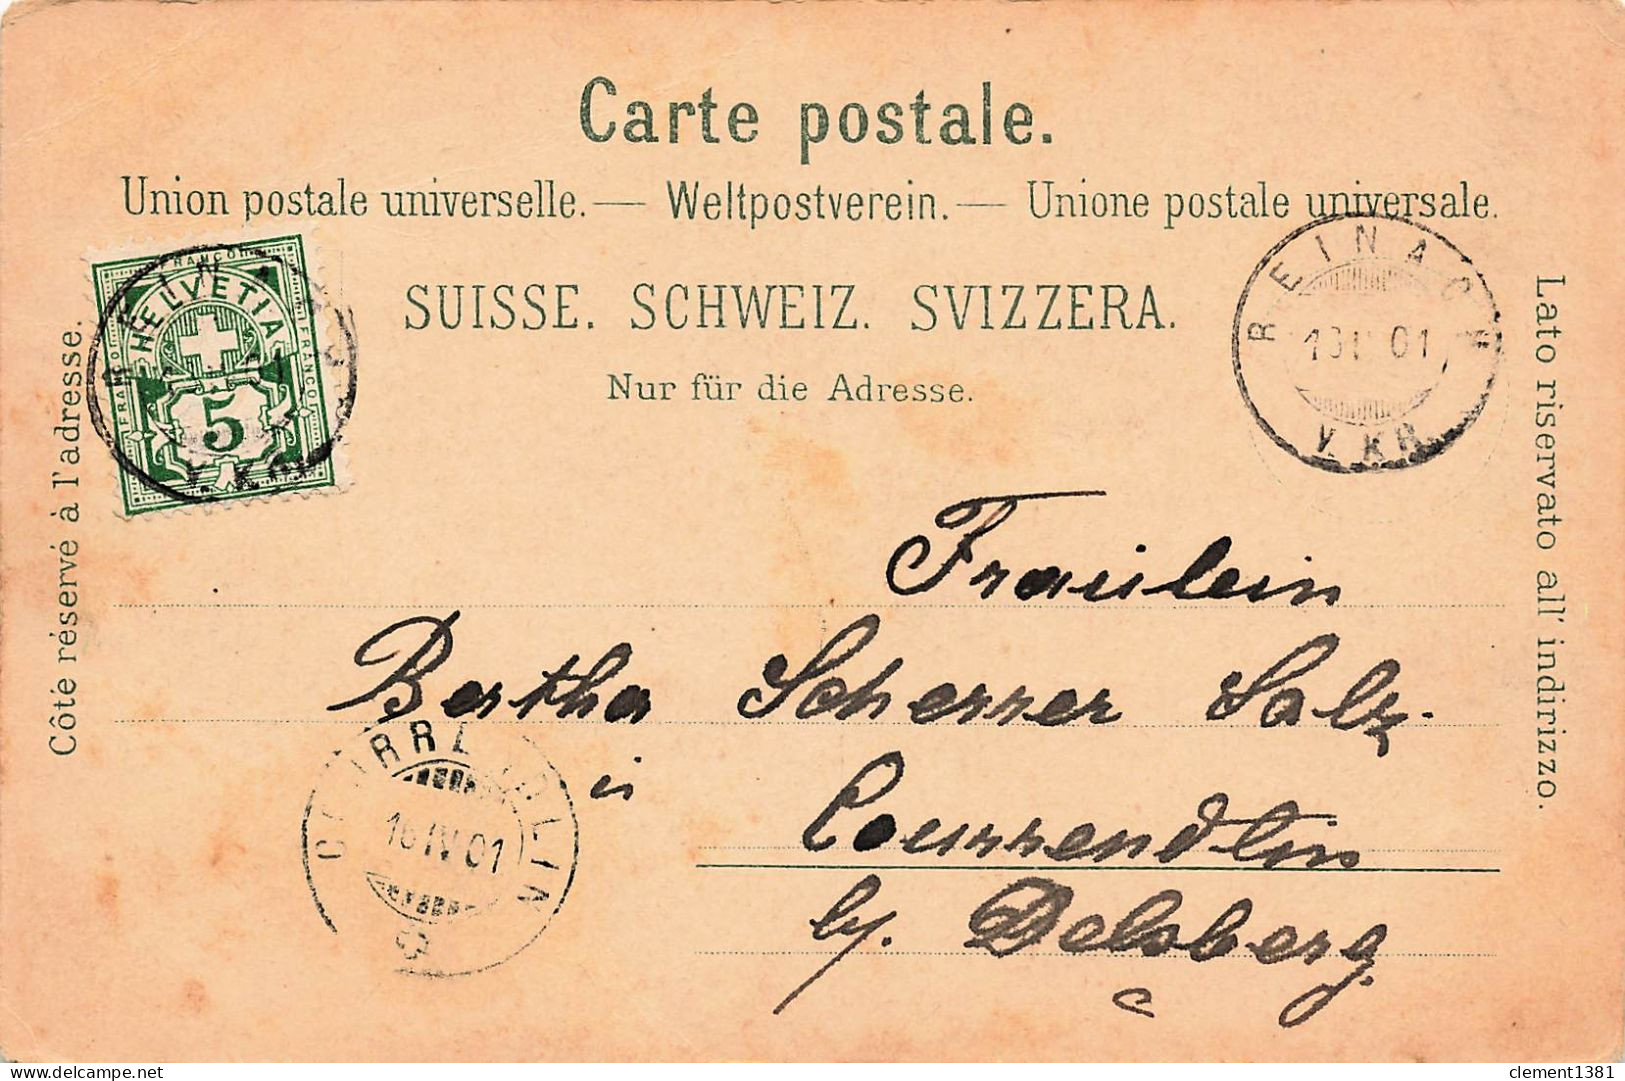 Carte postale.
Union postale universelle. — Weltpostverein. — Unione postale universale.
SUISSE. SCHWEIZ. SVIZZERA.
Nur für die Adresse.
Côte réservé à l'adresse.
Lato riservato all' indirizzo.
FRANCO
HELVETIA
FRANCO
FRANCO
5
REINACH
01
V. KR.
Fraulein
Bertha Scherrer Salz.
in
Courrendlin
by. Delsberg.
16 IV 01
clement1381